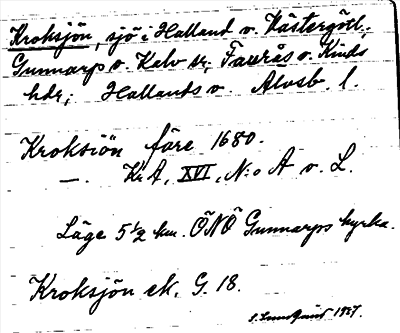 Kroksjön, sjö i Halland o. Västergötl.;
Gunnarp o. Kalv sr, Faurås o. Kinds
hdr; Hallands o. Älvsb. l.
Kroksiön före 1680.
—. KrA, XVI, N:o A o. L.
Läge 5 1/2 km. ÖNÖ Gunnarps kyrka.
Kroksjön ek. G. 18.
S. Lundquist 1927.